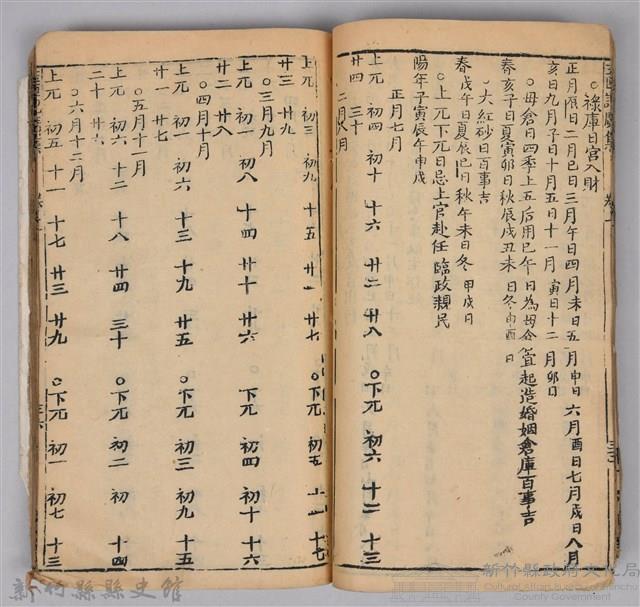 ○祿庫日宮入財
正月辰日二月巳日三月午日四月未日五月申日六月酉日七月戌日八月
亥日九月子日十月丑日十一月寅日十二月卯日
○母倉日四季上五后用巳午日為母倉宜起造婚姻倉庫百事吉
春亥子日夏寅卯日秋辰戌丑未日冬申酉日
○大紅砂日百事吉
春戊午日夏辰巳日秋午未日冬甲戌日
○上元下元日忌上官赴任臨政親民
陽年子寅辰午申戌
正月七月
上元 初四 初十 十六 廿二 廿八 ○下元 初六 十二 十三
廿四 三十
二月八月
上元 初三 初九 十五 廿一 廿七 ○下元 初五 十一 十七
廿三 廿九
○三月九月
上元 初二 初八 十四 廿十 廿六 ○下元 初四 初十 十六
廿二 廿八
○四月十月
上元 初一 初六 十三 十九 廿五 ○下元 初三 初九 十五
○五月十一月
上元 初六 十二 十八 廿四 三十 ○下元 初二 初 十四
二十 廿六
○六月十二月
上元 初五 十一 十七 廿三 廿九 ○下元 初一 初七 十三
新竹縣縣史館
新竹縣政府文化局
Cultural Affairs Bureau of Hsinchu
County Government